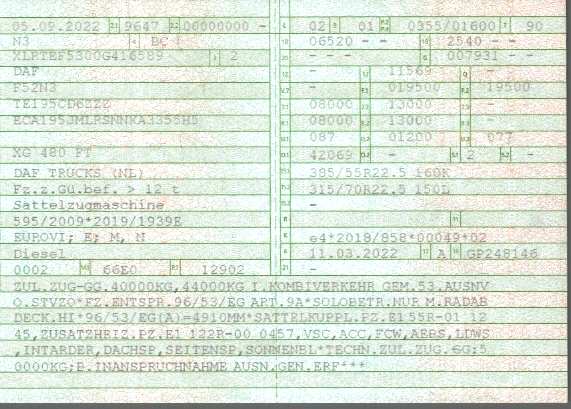 05.09.2022 9647 00000000 - 02 01 0355/01600 90
N3 BC 06520 - - 2540 - -
XLRTEF5300G416589 2 - - - 007931 - -
DAF - 11569 -
F52N3 - 019500 19500
TE195CD6ZZZ 08000 13000 -
ECA195JMLRSNNKA3355H5 08000 13000 -
087 01200 077
XG 480 FT 42069 - 2 -
DAF TRUCKS (NL) 385/55R22.5 160K
Fz.z.Gü.bef. > 12 t 315/70R22.5 150L
Sattelzugmaschine -
595/2009*2019/1939E
EUROVI; E; M, N e4*2018/858*00049*02
Diesel 11.03.2022 A GP248146
0002 66E0 12902 -
ZUL.ZUG-GG.40000KG,44000KG I.KOMBIVERKEHR GEM.53.AUSNV
O.STVZO*FZ.ENTSPR.96/53/EG ART.9A*SOLOBETR.NUR M.RADAB
DECK.HI*96/53/EG(A)=4910MM*SATTELKUPPL.PZ.E1 55R-01 12
45,ZUSATZHRIZ.PZ.E1 122R-00 0457,VSC,ACC,FCW,AEBS,LDWS
,INTARDER,DACHSP,SEITENSP,SONNENBL*TECHN.ZUL.ZUG.GG:5
0000KG;B.INANSPRUCHNAHME AUSN.GEN.ERF***